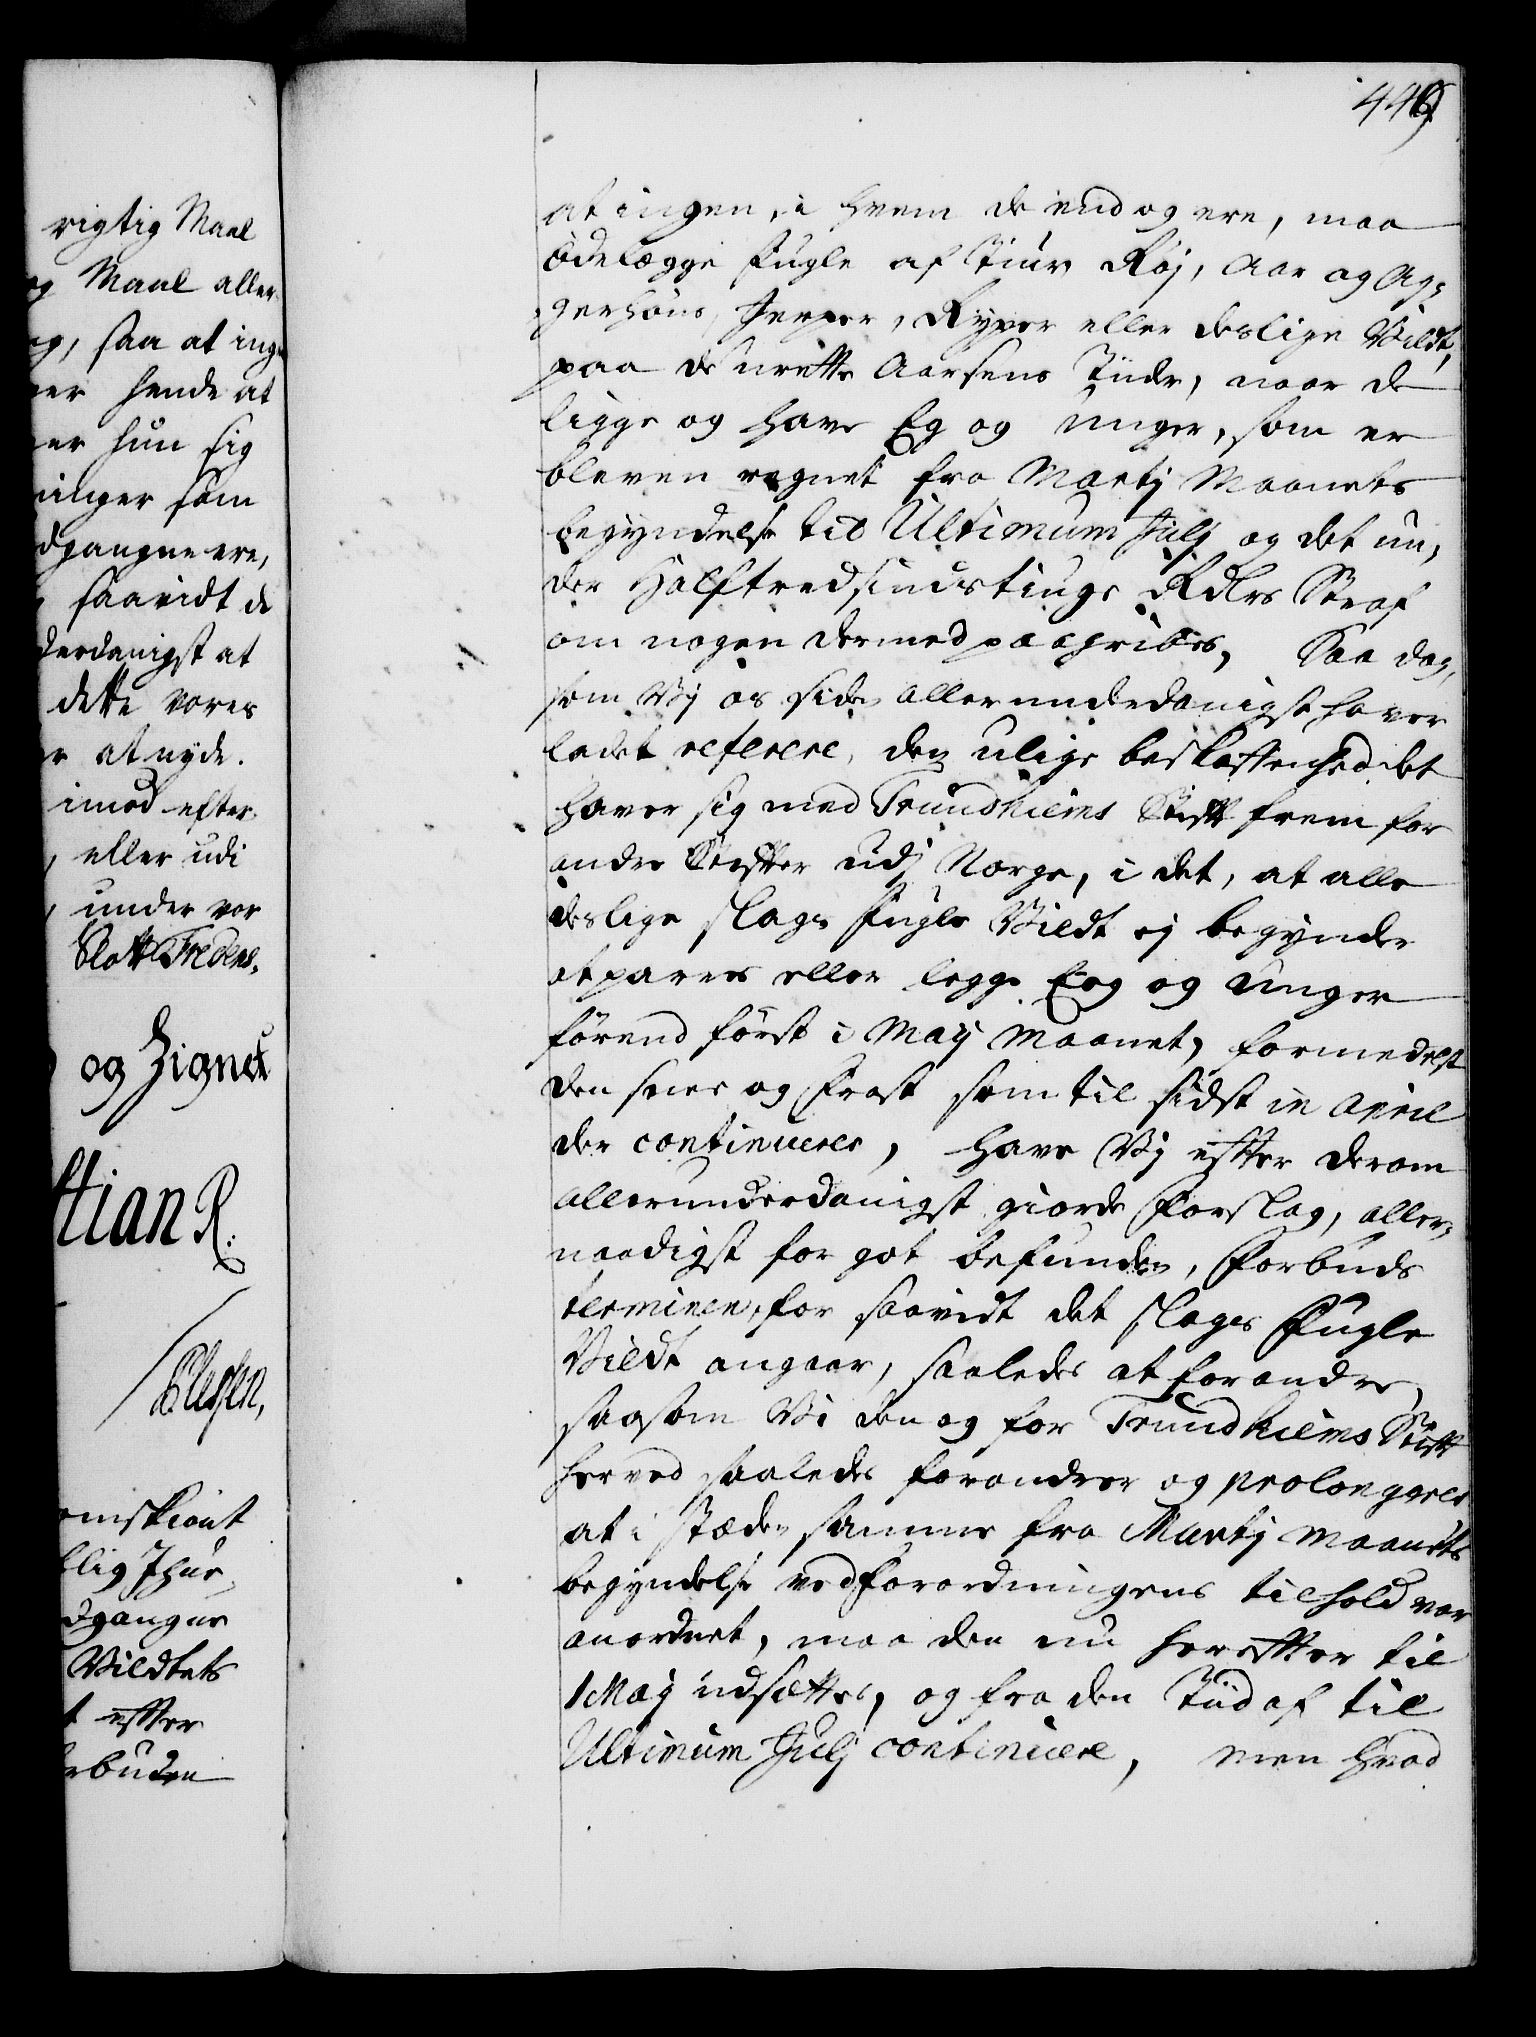 rigtig Maal
og Maal aller
og, saa at ing
er hende at
er hun sig
ninger som
dgangne ere,
saavidt de
derdanigst at
dette vores
r at nyde.
imod efter
, eller udi
, under vor
Slott Friderc,
og Zignet
stian R.
omskiönt
llig Ihue
dgangne
Vildtets
t effter
rbuden
449
at ingen, i hvem de end og ere, maa
ödelægge fugle af Tiur Röj, Aar og Ag,
gerhöns, Jerper, Ryper eller deslige Vildt,
paa de urette Aarsens Tiider, naar de
ligge og have Eg og Unger, som er
bleven regnet fra Martij Maanets
begyndelse til Ultimum Julij og det un,
der Halftredsindstiuge Rdlrs Straf
om nogen dermed paagribes, Saa dog,
som Vij os siden allerunderdanigst haver
ladet referere, den ulige beskaffenhed det
haver sig med Trundhiems Stift frem for
andre Steffter udj Norge, i det, at alle
deslige slags Fugle Vildt ej begynder
at parres eller legge Eeg og Unger
förend först i Maij Maanet, formedelst
den snee og Frost som til sidst in April
der continuerer, Have Vij effter derom
allerunderdanigst giorde Forslag, aller,
naadigst for got befunden, Forbuds
terminen, for saavidt det slags Fugle
Vildt angaar, saaledes at forandre,
saasom Vi den og for Trundhiems Stift
herved saaledes forandrer og prolongerer
at i stæden samme fra Martij Maanets
begyndelse ved Forordningens tilhold var
anordnet, maa den nu hereffter til
1 Maij udsættes, og fra den Tiid af til
Ultimum Julij continuere, men hvad